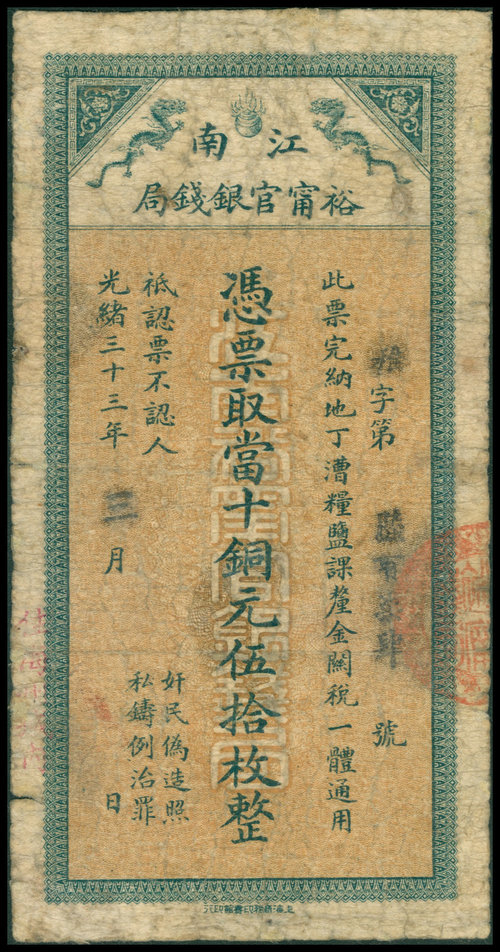 江南
裕甯官銀錢局
字第 號
此票完納地丁漕糧鹽課釐金關稅一體通用
憑票取當十銅元伍拾枚整
祗認票不認人
光緒三十三年三月 日
奸民偽造照
私鑄例治罪